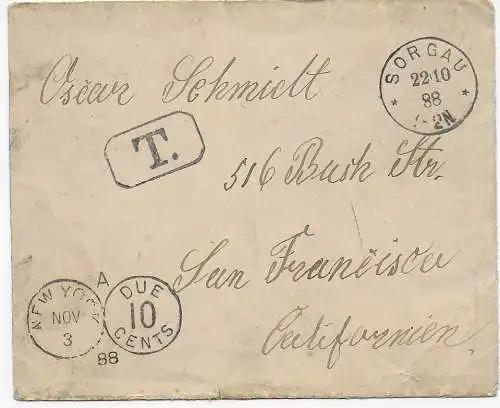 SORGAU
22 10
88
1-2N
Oscar Schmidt
T.
516 Bush Str.
San Francisco
Californien.
A
NEW YORK
NOV
3
88
DUE
10
CENTS